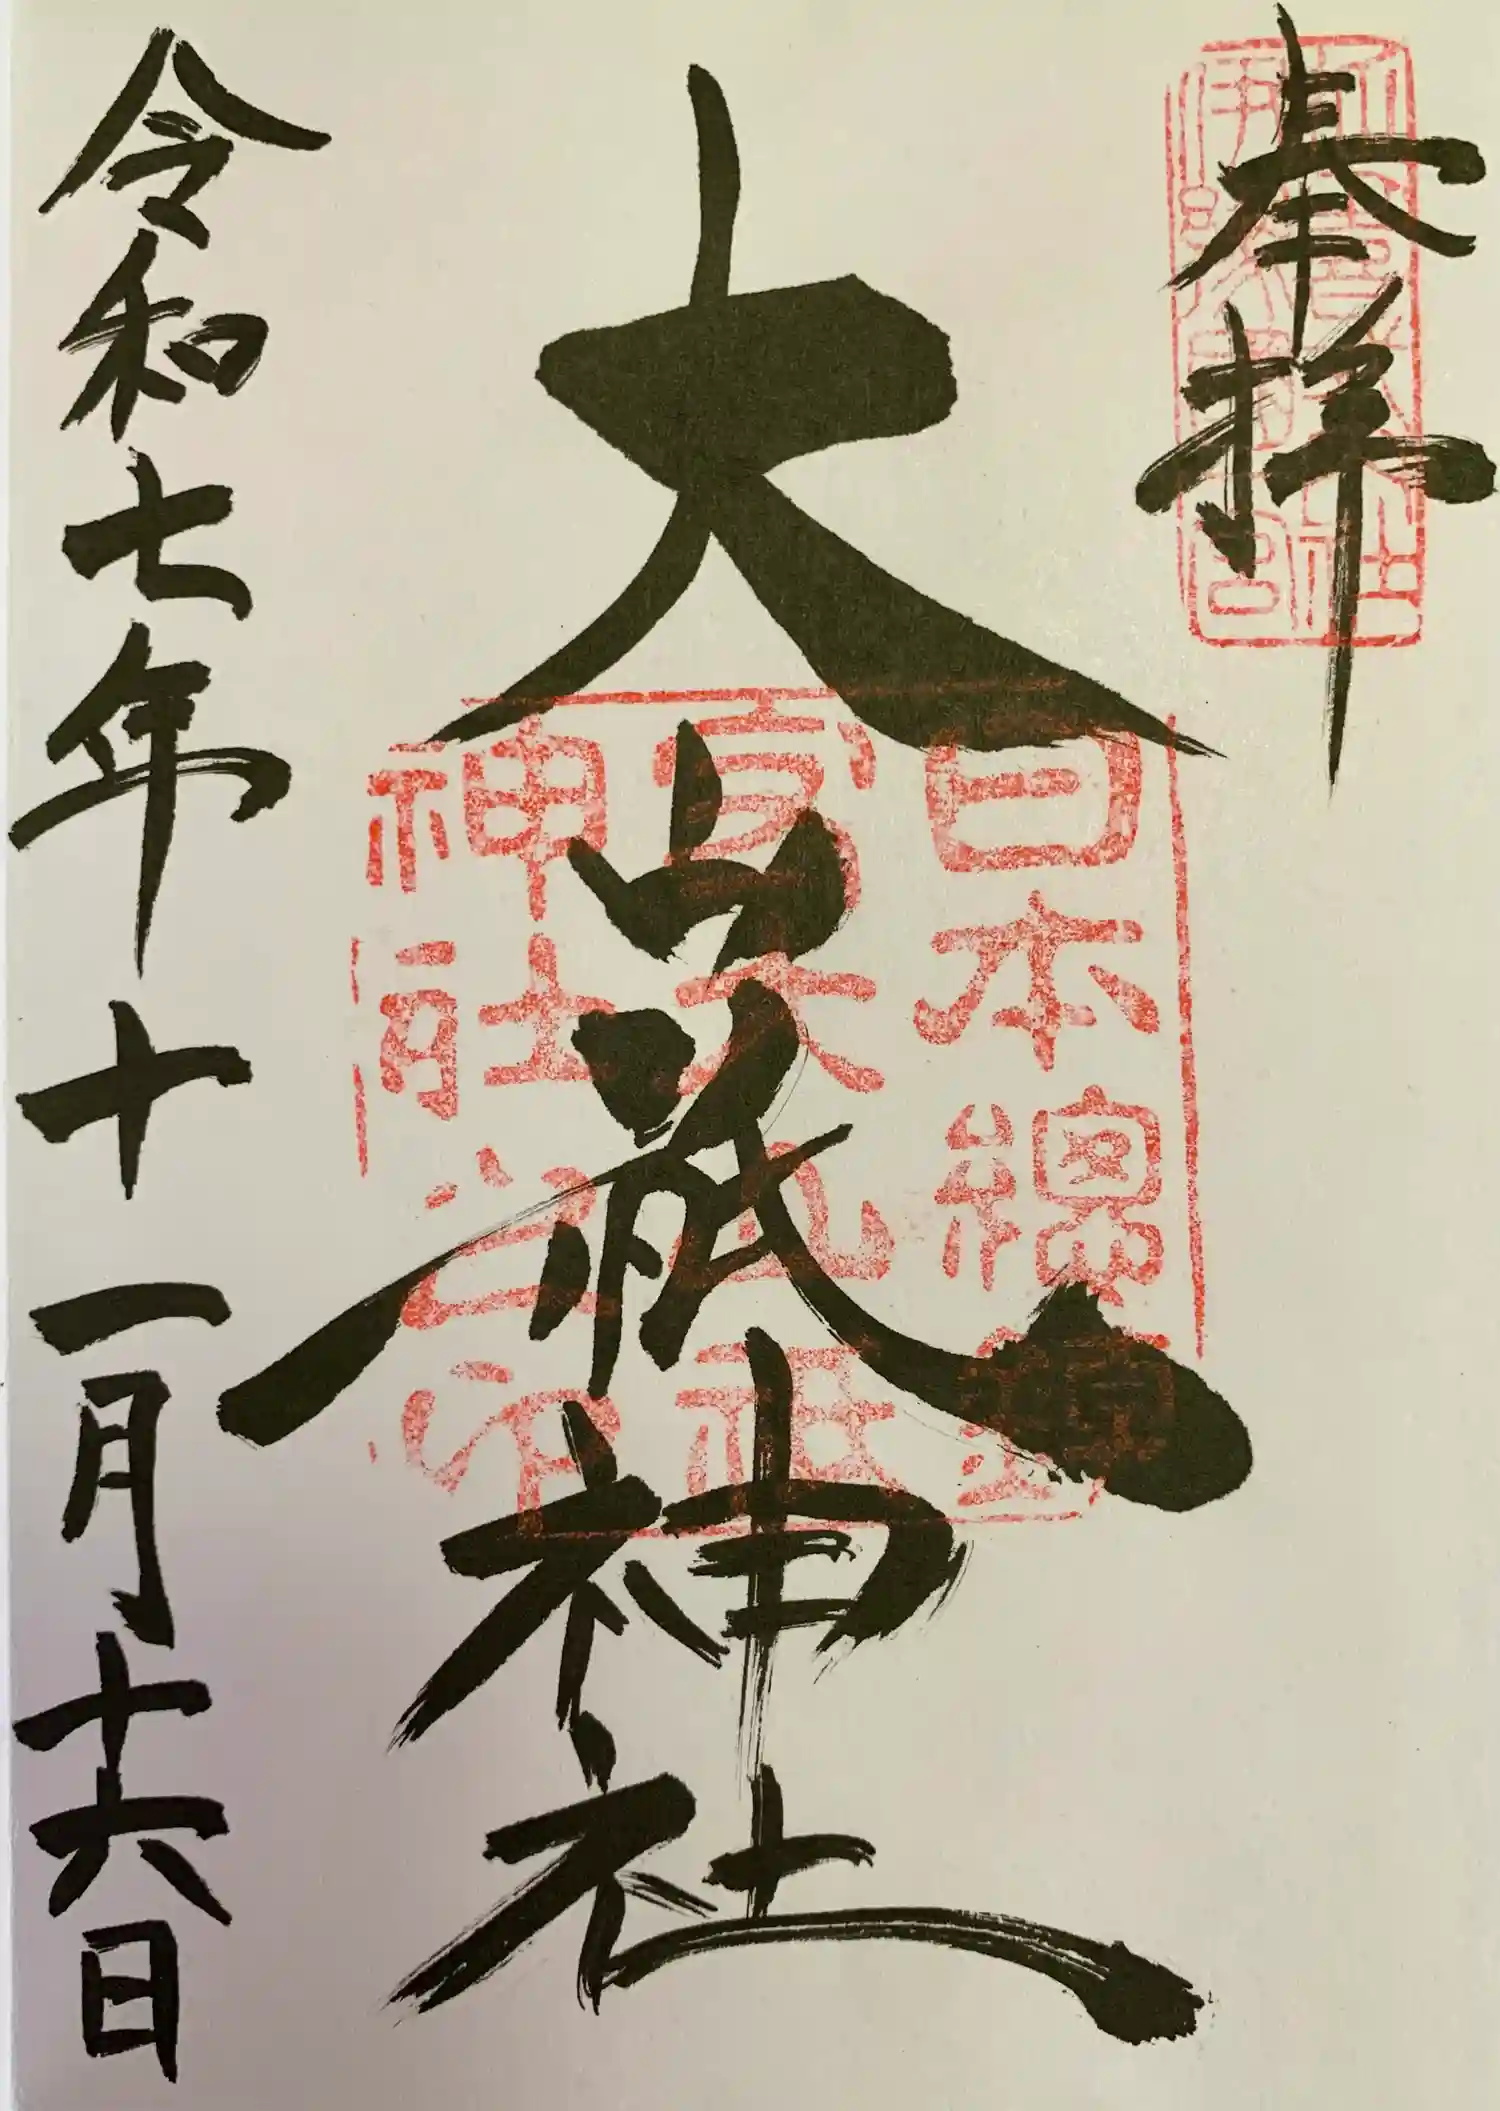 奉拝
大山祇神社
日本總鎮
守大山祇
神社之印
令和七年十一月十六日